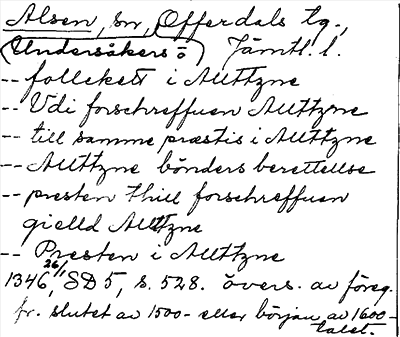 Alsen, sn, Offerdals tg.,
Undersåkers ö Jämtl. l.
-- folleket i Alltzne
-- Udi forschreffuen Alltzne
-- till samme præstis i Alltzne
-- Alltzne bönders berettellse
-- presten thill forschreffuen
gielld Alltzne
-- Presten i Alltzne
1346 26/1, SD 5, s. 528. övers. av föreg.
fr. slutet av 1500- eller början av 1600-
talet.